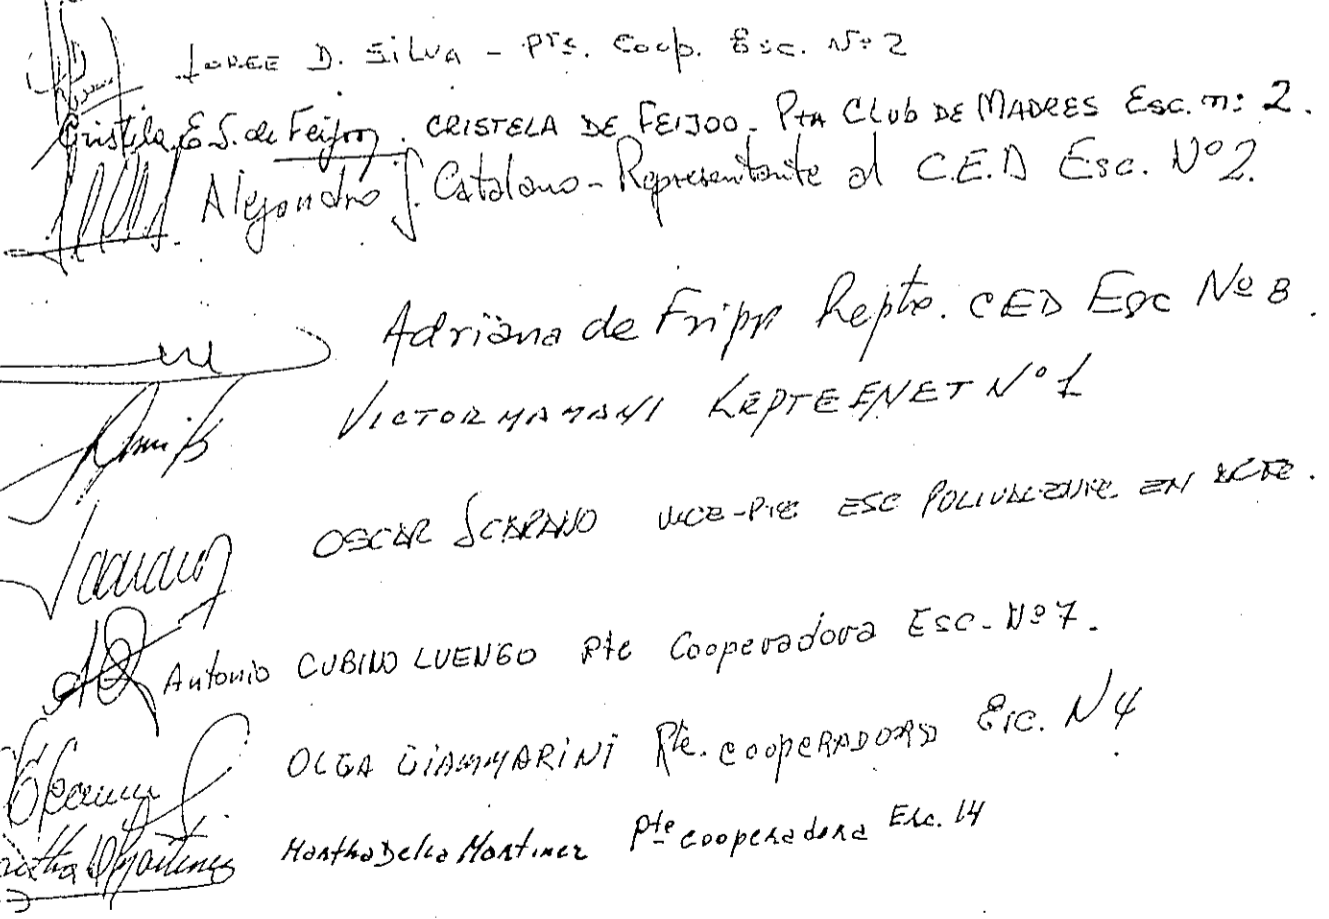 JORGE D. SILVA - Pte. Coop. Esc. Nº 2
Cristela E. S. de Feijoo. CRISTELA DE FEIJOO - Pta Club DE MADRES Esc. nº 2.
Alejandro J. Catalano - Representante al C.E.D Esc. Nº 2.
Adriana de Fripp Repte. CED Esc Nº 8.
VICTOR MAMANI REPTE ENET Nº 1
OSCAR SCARANO VICE-PTE ESC POLIVALENTE EN ARTE.
Antonio CUBINO LUENGO Pte Cooperadora Esc. Nº 7.
OLGA GIAMMARINI Pte. COOPERADORA Esc. N 4
Martha D Martinez Martha Delia Martinez Pte cooperadora Esc. 14